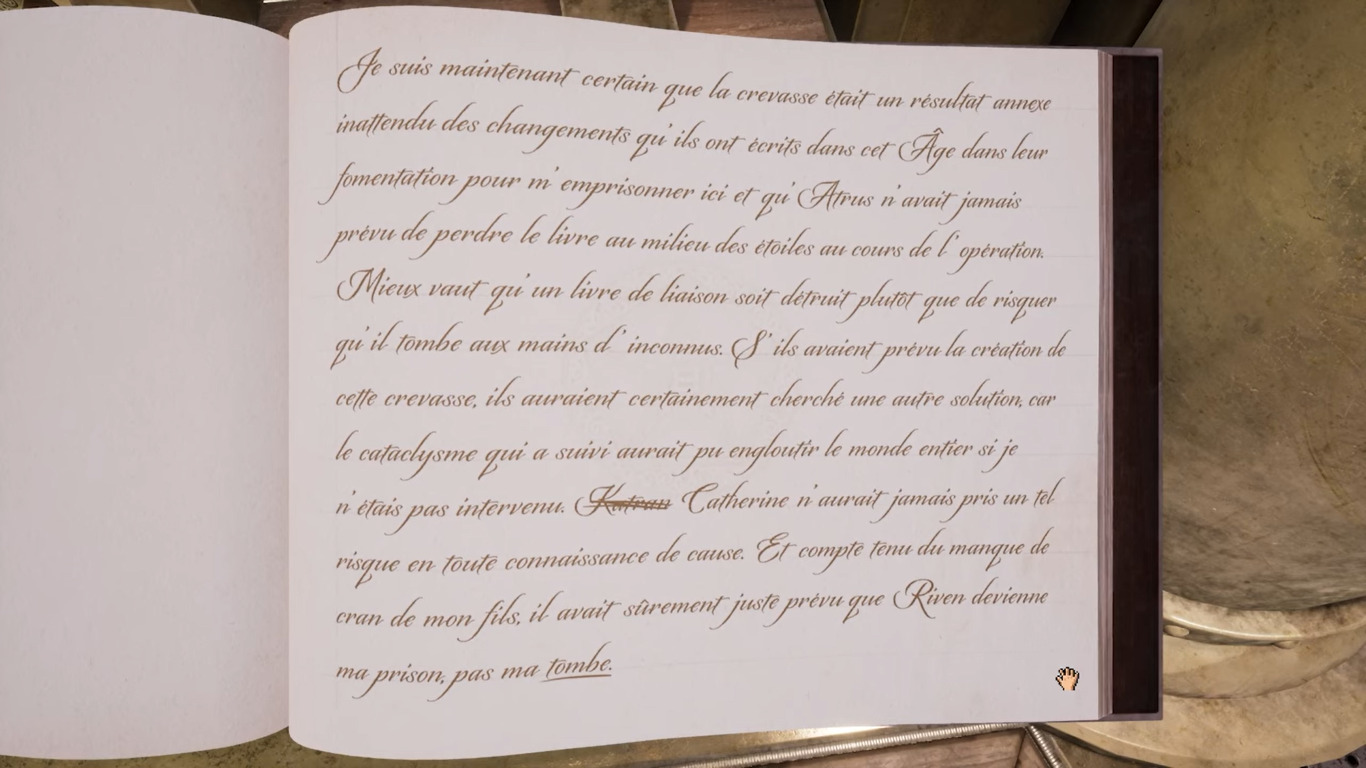 Je suis maintenant certain que la crevasse était un résultat annexe
inattendu des changements qu'ils ont écrits dans cet Âge dans leur
fomentation pour m'emprisonner ici et qu'Atrus n'avait jamais
prévu de perdre le livre au milieu des étoiles au cours de l'opération.
Mieux vaut qu'un livre de liaison soit détruit plutôt que de risquer
qu'il tombe aux mains d'inconnus. S'ils avaient prévu la création de
cette crevasse, ils auraient certainement cherché une autre solution, car
le cataclysme qui a suivi aurait pu engloutir le monde entier si je
n'étais pas intervenu. Katran Catherine n'aurait jamais pris un tel
risque en toute connaissance de cause. Et compte tenu du manque de
cran de mon fils, il avait sûrement juste prévu que Riven devienne
ma prison, pas ma tombe.